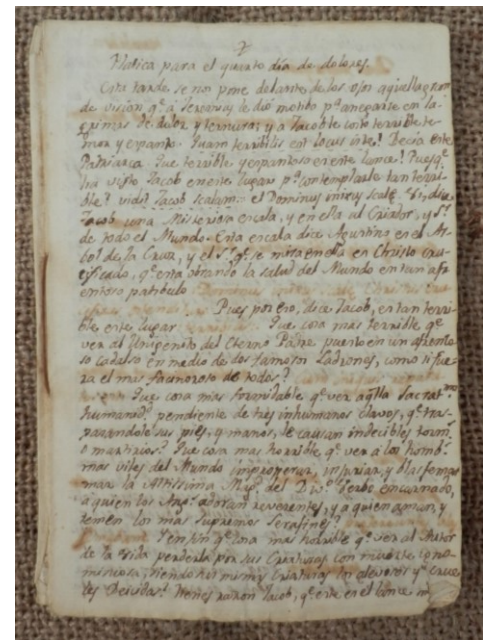 Platica para el quarto día de dolores.
Esta tarde se nos pone delante de los ojos aquella gran
de vision q.e á Jeremias le dió motibo p.a anegarse en la
grimas de dolor y ternuras y a Jacob le costó terrible te
mor y espanto. Quam terribilis est locus iste! Decia este
Patriarca. Que terrible y espantoso es este lance! Pues q.e
ha visto Jacob en este lugar p.a contemplarle tan terri
ble? vidit Jacob scalam et Dominus innixus scalæ &c, dice
Jacob una Misteriosa escala, y en ella al Criador, y S.r
de todo el Mundo. Esta escala dice Agustino es el Ar
bol de la Cruz, y el S.r q.e se mira en ella es Christo cru
cificado, q.e esta obrando la salud del Mundo en tan afr
entoso patibulo.
Pues por eso, dice Jacob, es tan terri
ble este lugar. Que cosa mas terrible q.e
ver al Unigenito del Eterno Padre puesto en un afrento
so cadalso en medio de dos famosos Ladrones, como si fue
ra el mas facineroso de todos?
Que cosa mas formidable q.e ver aq.lla Sacrat.ma
humanid.d pendiente de tres inhumanos clavos, q.e tras
pasandole sus pies, y manos, le causan indecibles torm.
o martirios? Que cosa mas horrible q.e ver a los homb.s
mas viles del Mundo improperar, injuriar, y blasfemar
la Altissima Mag.d del Div.o Verbo encarnado,
a quien los Ang.s adoran reverentes, y a quien aman, y
temen los mas supremos Serafines?
Y en fin q.e cosa mas horrible q.e ver al Autor
de la vida perderla por sus Criaturas con muerte igno
miniosa, siendo las mismas Criaturas los alevosos y crue
les Deicidas? Tienes razon Jacob, q.e este es el lance